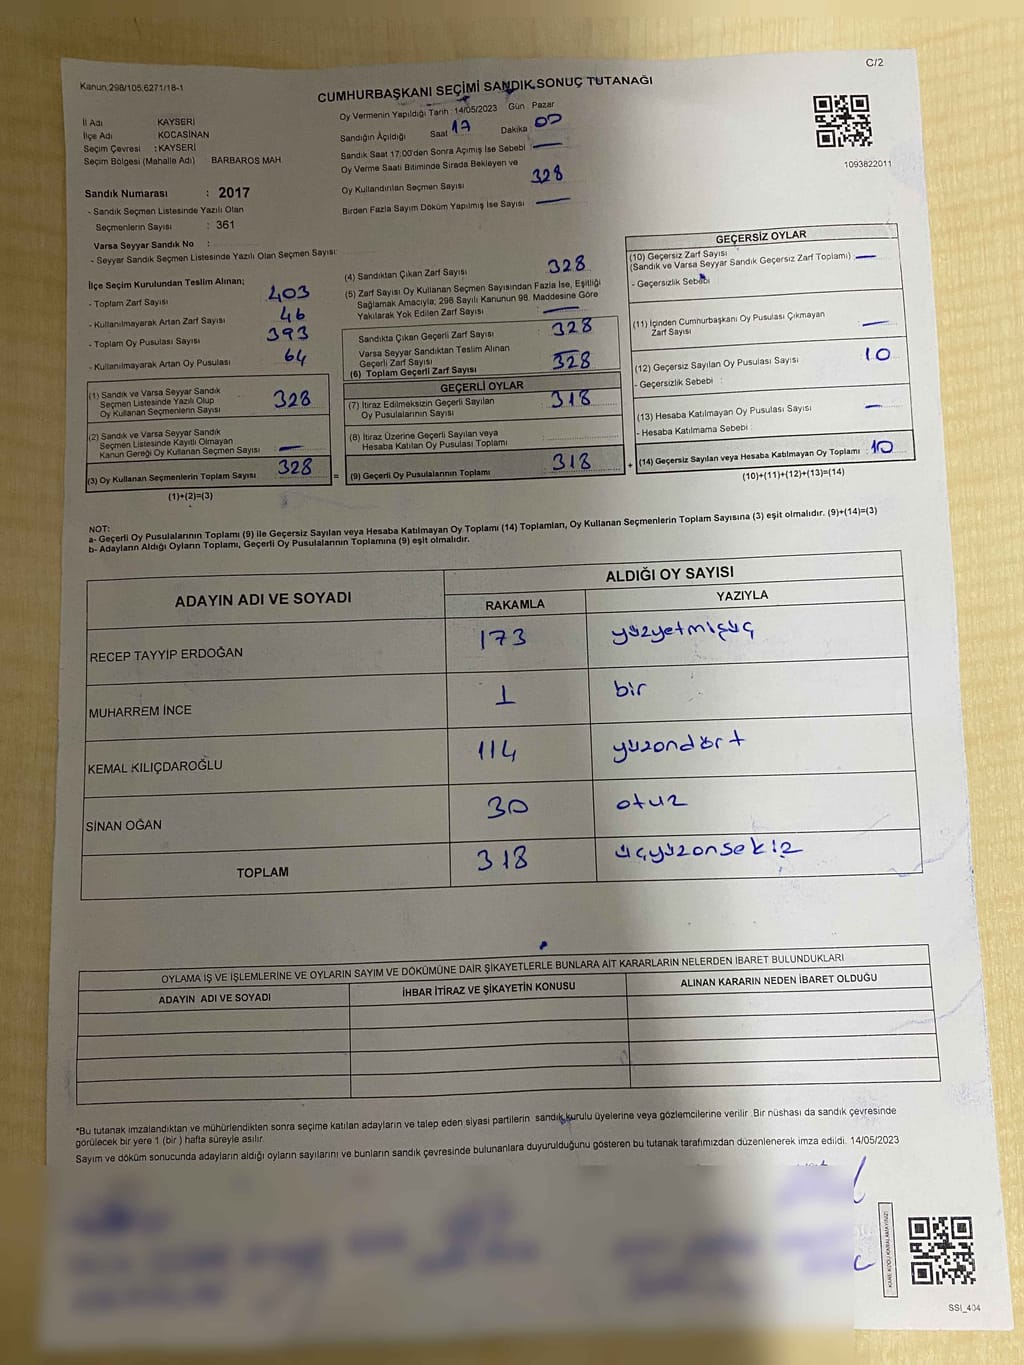 C/2
Kanun,298/105,6271/18-1
CUMHURBAŞKANI SEÇİMİ SANDIK SONUÇ TUTANAĞI
İl Adı KAYSERİ
İlçe Adı KOCASİNAN
Seçim Çevresi : KAYSERİ
Seçim Bölgesi (Mahalle Adı) BARBAROS MAH
Sandık Numarası : 2017
- Sandık Seçmen Listesinde Yazılı Olan
Seçmenlerin Sayısı : 361
Varsa Seyyar Sandık No :
- Seyyar Sandık Seçmen Listesinde Yazılı Olan Seçmen Sayısı:
Oy Vermenin Yapıldığı Tarih : 14/05/2023 Gün : Pazar
Sandığın Açıldığı Saat 17 Dakika 00
Sandık Saat 17:00'den Sonra Açımış İse Sebebi : —
Oy Verme Saati Bitiminde Sırada Bekleyen ve
Oy Kullandırılan Seçmen Sayısı 328
Birden Fazla Sayım Döküm Yapılmış İse Sayısı —
1093822011
İlçe Seçim Kurulundan Teslim Alınan;
- Toplam Zarf Sayısı 403
- Kullanılmayarak Artan Zarf Sayısı 46
- Toplam Oy Pusulası Sayısı 393
- Kullanılmayarak Artan Oy Pusulası 64
(1) Sandık ve Varsa Seyyar Sandık
Seçmen Listesinde Yazılı Olup
Oy Kullanan Seçmenlerin Sayısı 328
(2) Sandık ve Varsa Seyyar Sandık
Seçmen Listesinde Kayıtlı Olmayan
Kanun Gereği Oy Kullanan Seçmen Sayısı —
(3) Oy Kullanan Seçmenlerin Toplam Sayısı 328
(1)+(2)=(3)
(4) Sandıktan Çıkan Zarf Sayısı 328
(5) Zarf Sayısı Oy Kullanan Seçmen Sayısından Fazla İse, Eşitliği
Sağlamak Amacıyla; 298 Sayılı Kanunun 98. Maddesine Göre
Yakılarak Yok Edilen Zarf Sayısı —
Sandıkta Çıkan Geçerli Zarf Sayısı 328
Varsa Seyyar Sandıktan Teslim Alınan
Geçerli Zarf Sayısı —
(6) Toplam Geçerli Zarf Sayısı 328
GEÇERLİ OYLAR
(7) İtiraz Edilmeksizin Geçerli Sayılan
Oy Pusulalarının Sayısı 318
(8) İtiraz Üzerine Geçerli Sayılan veya
Hesaba Katılan Oy Pusulası Toplamı
= (9) Geçerli Oy Pusulalarının Toplamı 318
GEÇERSİZ OYLAR
(10) Geçersiz Zarf Sayısı
(Sandık ve Varsa Seyyar Sandık Geçersiz Zarf Toplamı) —
- Geçersizlik Sebebi
(11) İçinden Cumhurbaşkanı Oy Pusulası Çıkmayan
Zarf Sayısı —
(12) Geçersiz Sayılan Oy Pusulası Sayısı 10
- Geçersizlik Sebebi :
(13) Hesaba Katılmayan Oy Pusulası Sayısı —
- Hesaba Katılmama Sebebi :
+ (14) Geçersiz Sayılan veya Hesaba Katılmayan Oy Toplamı : 10
(10)+(11)+(12)+(13)=(14)
NOT:
a- Geçerli Oy Pusulalarının Toplamı (9) ile Geçersiz Sayılan veya Hesaba Katılmayan Oy Toplamı (14) Toplamları, Oy Kullanan Seçmenlerin Toplam Sayısına (3) eşit olmalıdır. (9)+(14)=(3)
b- Adayların Aldığı Oyların Toplamı, Geçerli Oy Pusulalarının Toplamına (9) eşit olmalıdır.
ADAYIN ADI VE SOYADI ALDIĞI OY SAYISI
RAKAMLA YAZIYLA
RECEP TAYYİP ERDOĞAN 173 yüzyetmişüç
MUHARREM İNCE 1 bir
KEMAL KILIÇDAROĞLU 114 yüzondört
SİNAN OĞAN 30 otuz
TOPLAM 318 üçyüzonsekiz
OYLAMA İŞ VE İŞLEMLERİNE VE OYLARIN SAYIM VE DÖKÜMÜNE DAİR ŞİKAYETLERLE BUNLARA AİT KARARLARIN NELERDEN İBARET BULUNDUKLARI
ADAYIN ADI VE SOYADI İHBAR İTİRAZ VE ŞİKAYETİN KONUSU ALINAN KARARIN NEDEN İBARET OLDUĞU
*Bu tutanak imzalandıktan ve mühürlendikten sonra seçime katılan adayların ve talep eden siyasi partilerin sandık kurulu üyelerine veya gözlemcilerine verilir .Bir nüshası da sandık çevresinde
görülecek bir yere 1 (bir ) hafta süreyle asılır.
Sayım ve döküm sonucunda adayların aldığı oyların sayılarını ve bunların sandık çevresinde bulunanlara duyurulduğunu gösteren bu tutanak tarafımızdan düzenlenerek imza edildi. 14/05/2023
KARE KODU KARALAMAYINIZ!
SSI_404